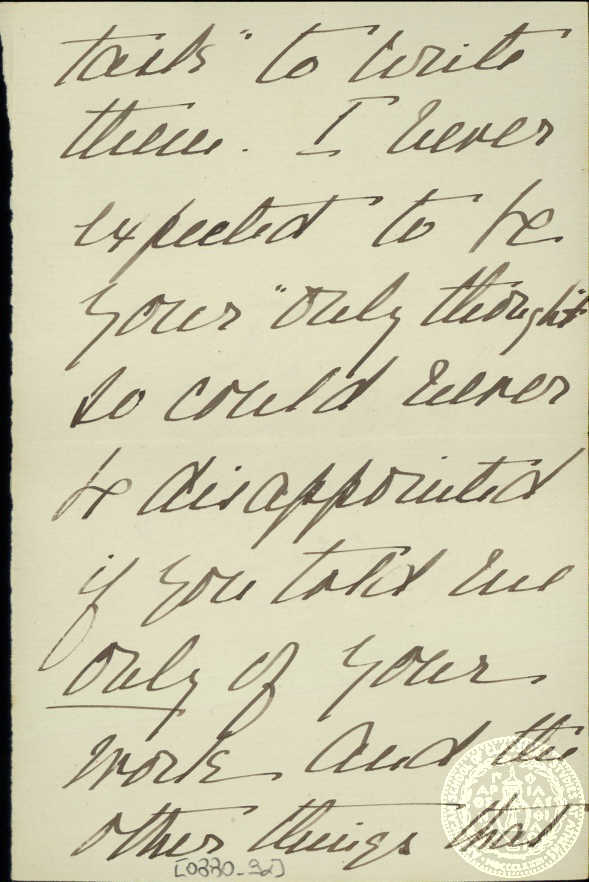 task" to write
them. I never
expected to be
your "only thought"
so could never
be disappointed
if you told me
only of your
work and the
other things that
[0330_32]